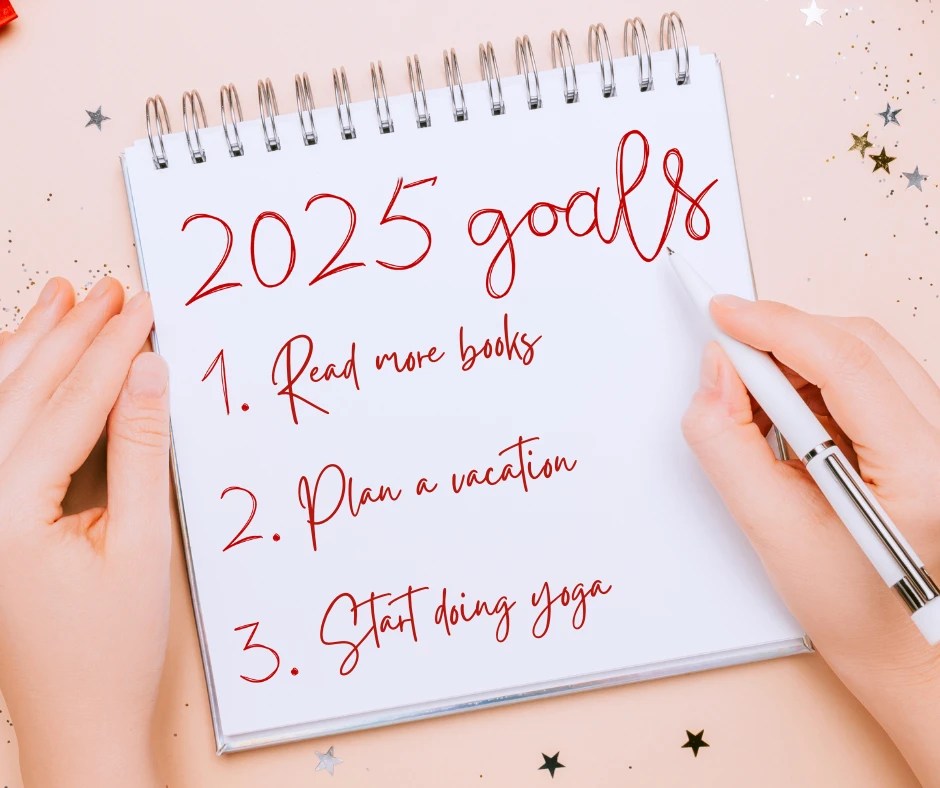 2025 goals
1. Read more books
2. Plan a vacation
3. Start doing yoga